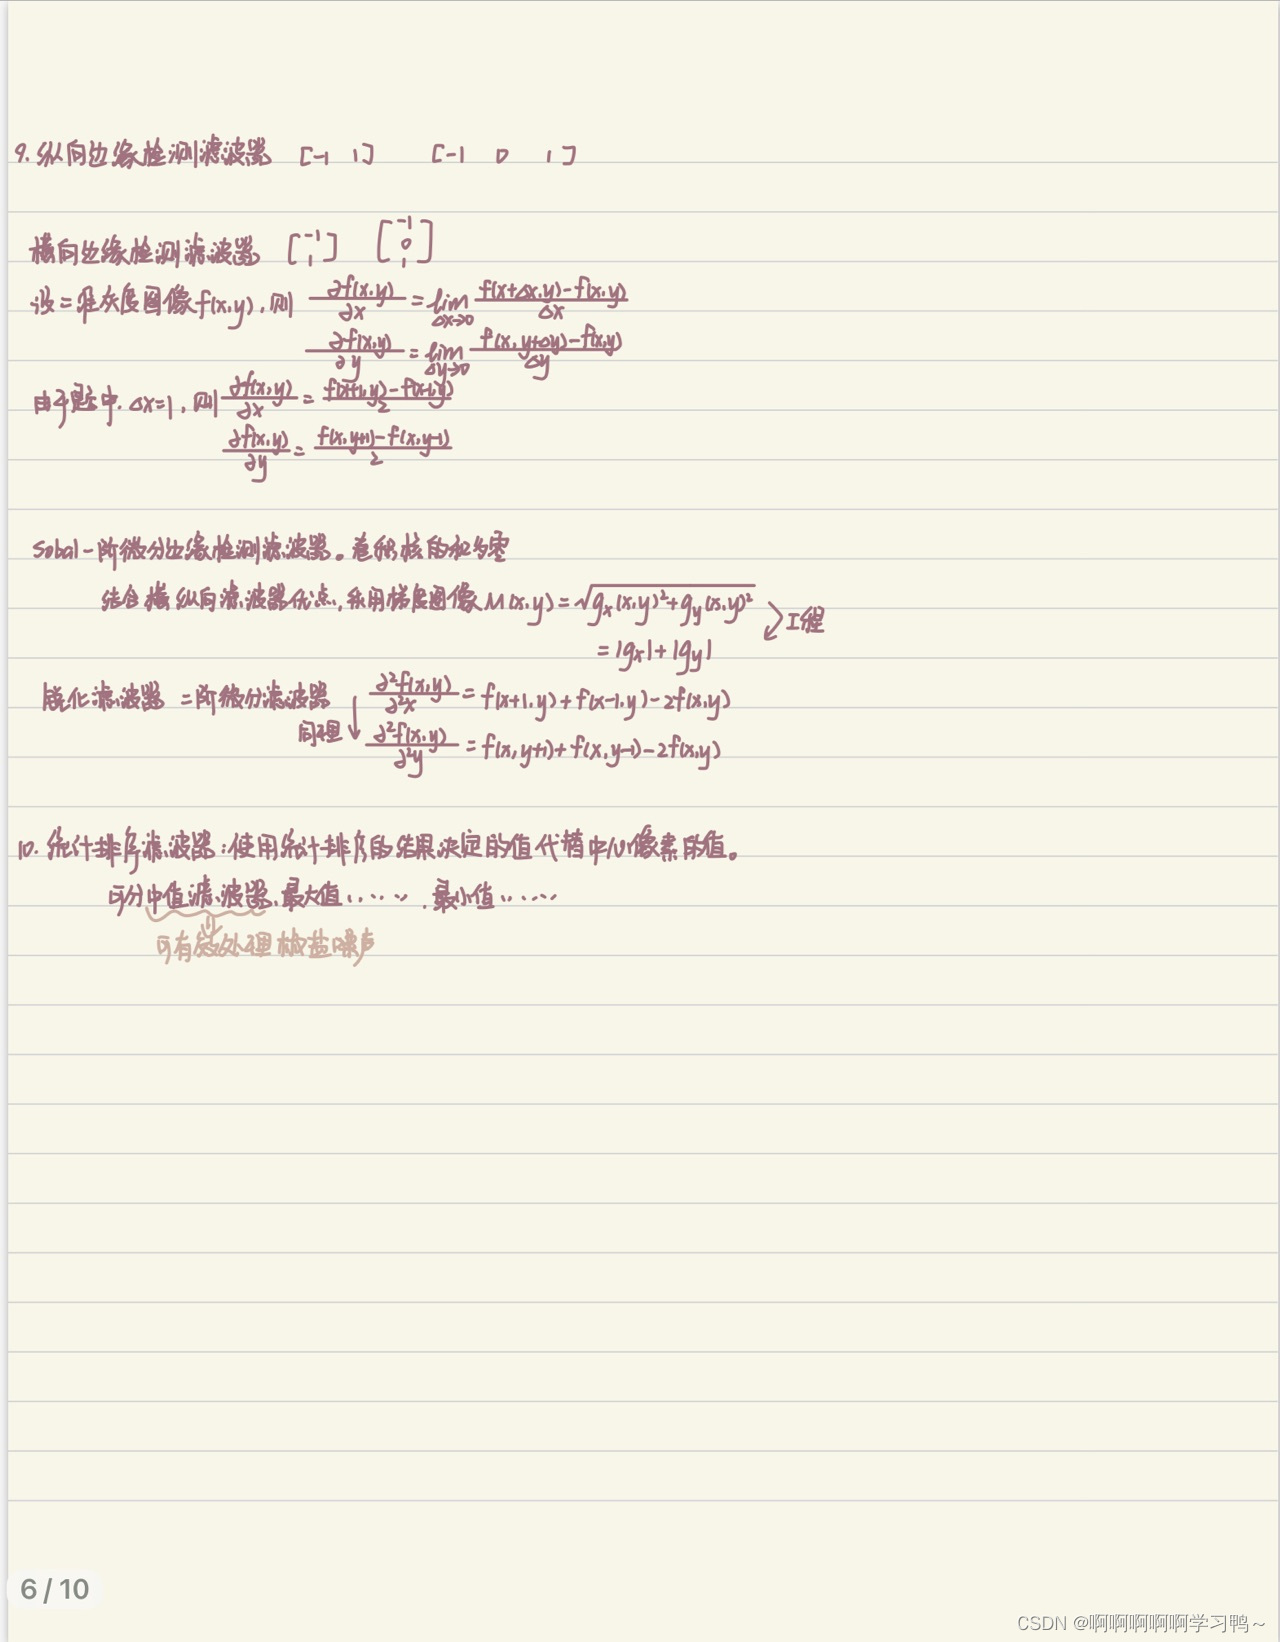 9. 纵向边缘检测滤波器 [-1 1] [-1 0 1]
横向边缘检测滤波器 [-1 1] [-1 0 1]
设二维灰度图像f(x,y),则 ∂f(x,y)/∂x = lim Δx→0 f(x+Δx,y)-f(x,y)/Δx
∂f(x,y)/∂y = lim Δy→0 f(x,y+Δy)-f(x,y)/Δy
由于题中,Δx=1,则 ∂f(x,y)/∂x = f(x+1,y)-f(x-1,y)/2
∂f(x,y)/∂y = f(x,y+1)-f(x,y-1)/2
Sobal一阶微分边缘检测滤波器。卷积核的和为零
结合横纵向滤波器优点,采用梯度图像M(x,y)=√gx(x,y)²+gy(x,y)²
工程
=|gx|+|gy|
锐化滤波器 二阶微分滤波器 ∂²f(x,y)/∂²x = f(x+1,y)+f(x-1,y)-2f(x,y)
同理 ∂²f(x,y)/∂²y = f(x,y+1)+f(x,y-1)-2f(x,y)
10. 统计排序滤波器:使用统计排序的结果决定的值代替中心像素的值。
可分中值滤波器、最大值……、最小值……
可有效处理椒盐噪声
6/10
CSDN @啊啊啊啊啊学习鸭~